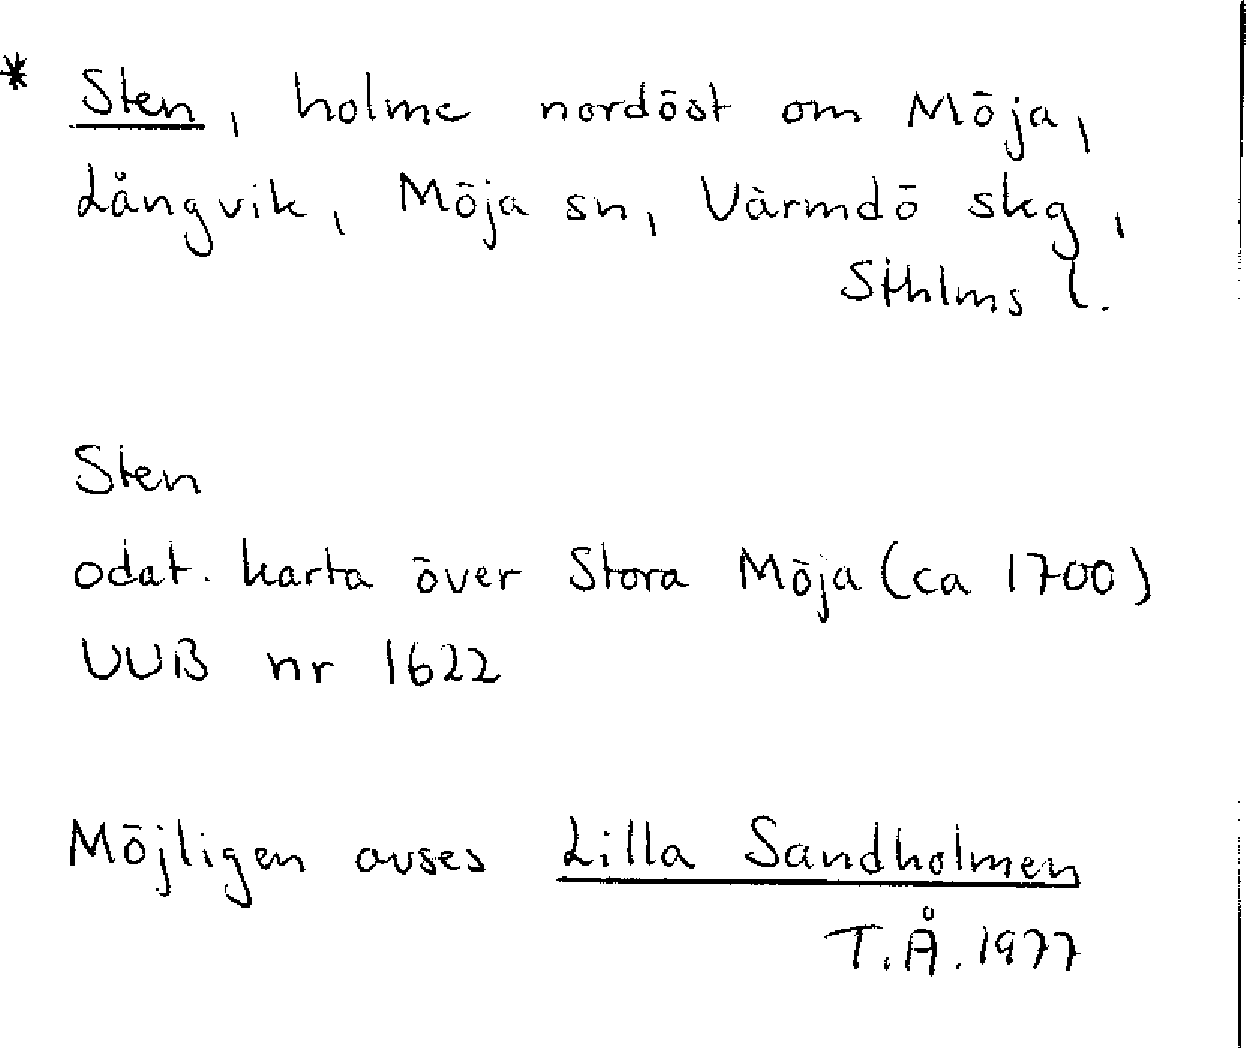 * Sten, holme nordöst om Möja,
Långvik, Möja sn, Värmdö skg,
Sthlms l.
Sten
odat. karta över Stora Möja (ca 1700)
UUB nr 1622
Möjligen avses Lilla Sandholmen
T.Å. 1977